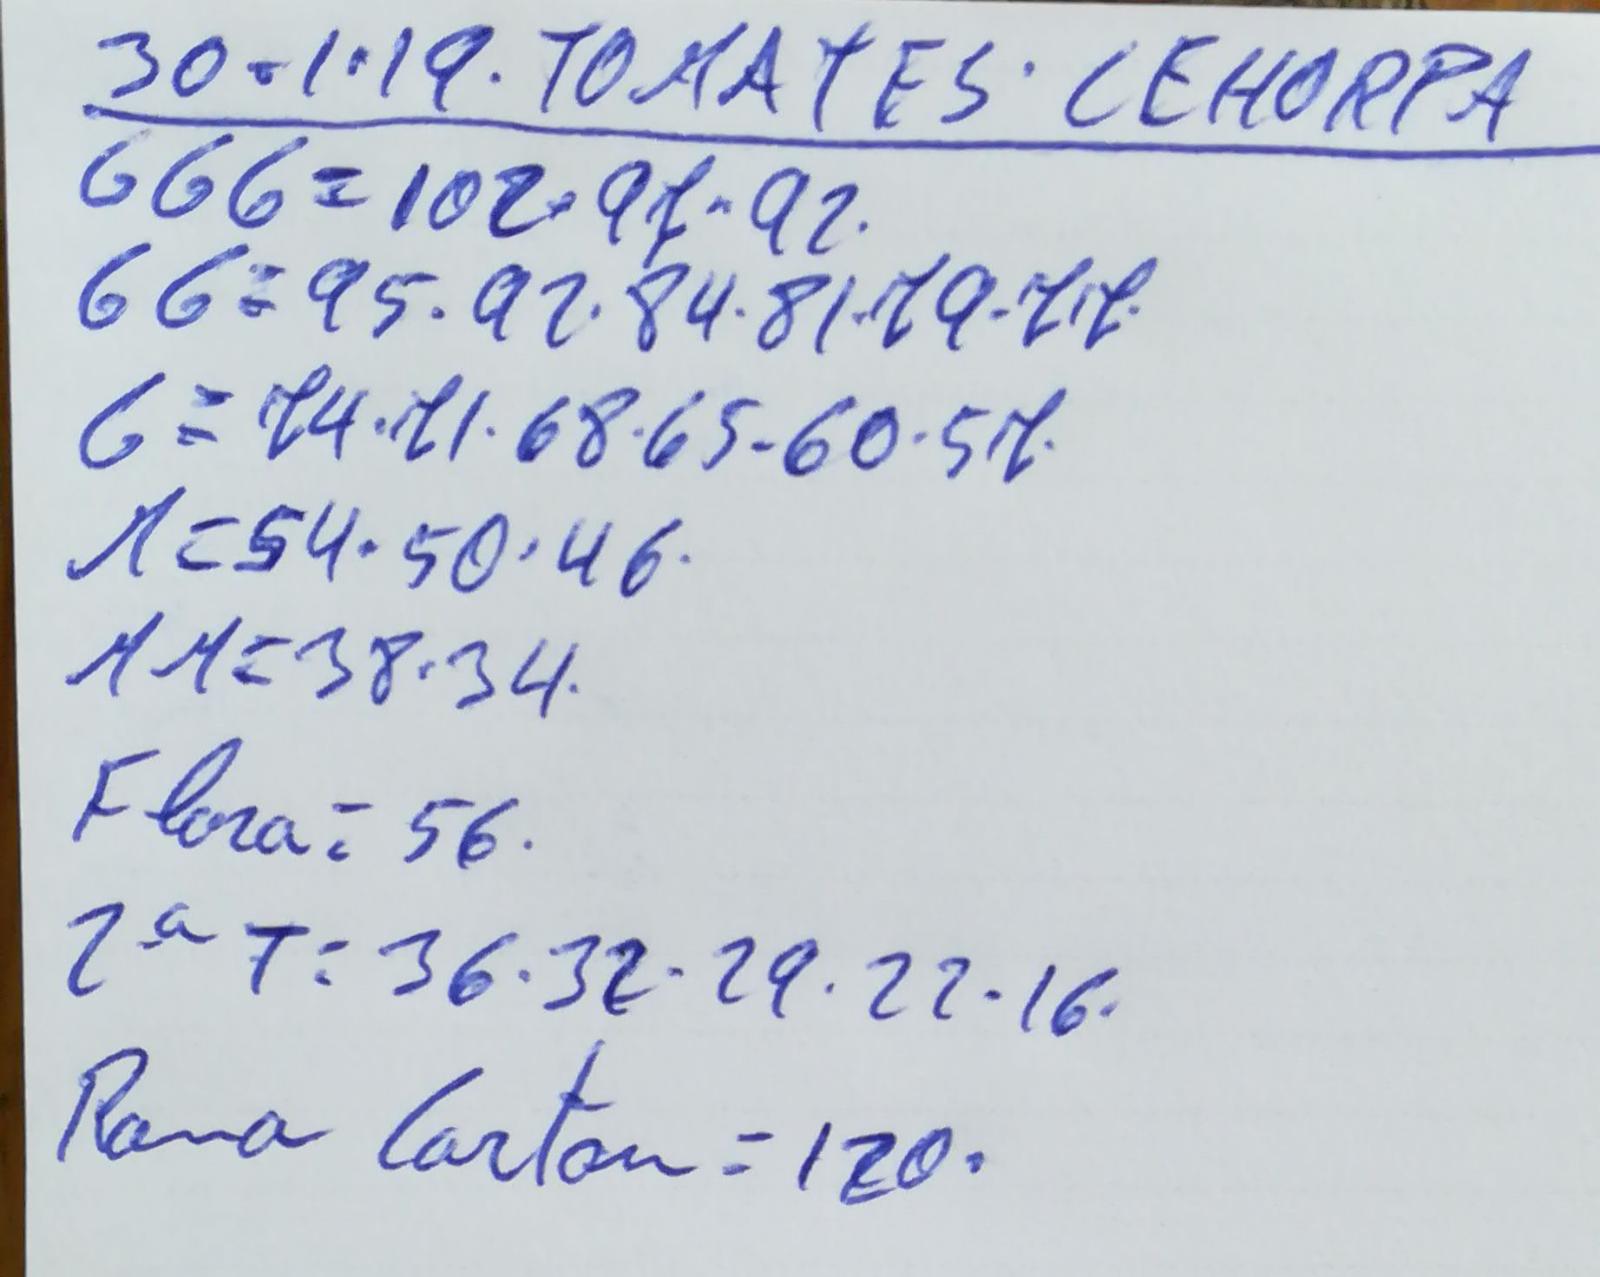 30.1.19. TOMATES. CEHORPA
GGG=102.97.92.
GG=95.92.84.81.79.77.
G=74.71.68.65.60.57.
M=54.50.46.
MM=38.34.
Flora=56.
2ª T=36.32.29.22.16.
Rama Carton=120.